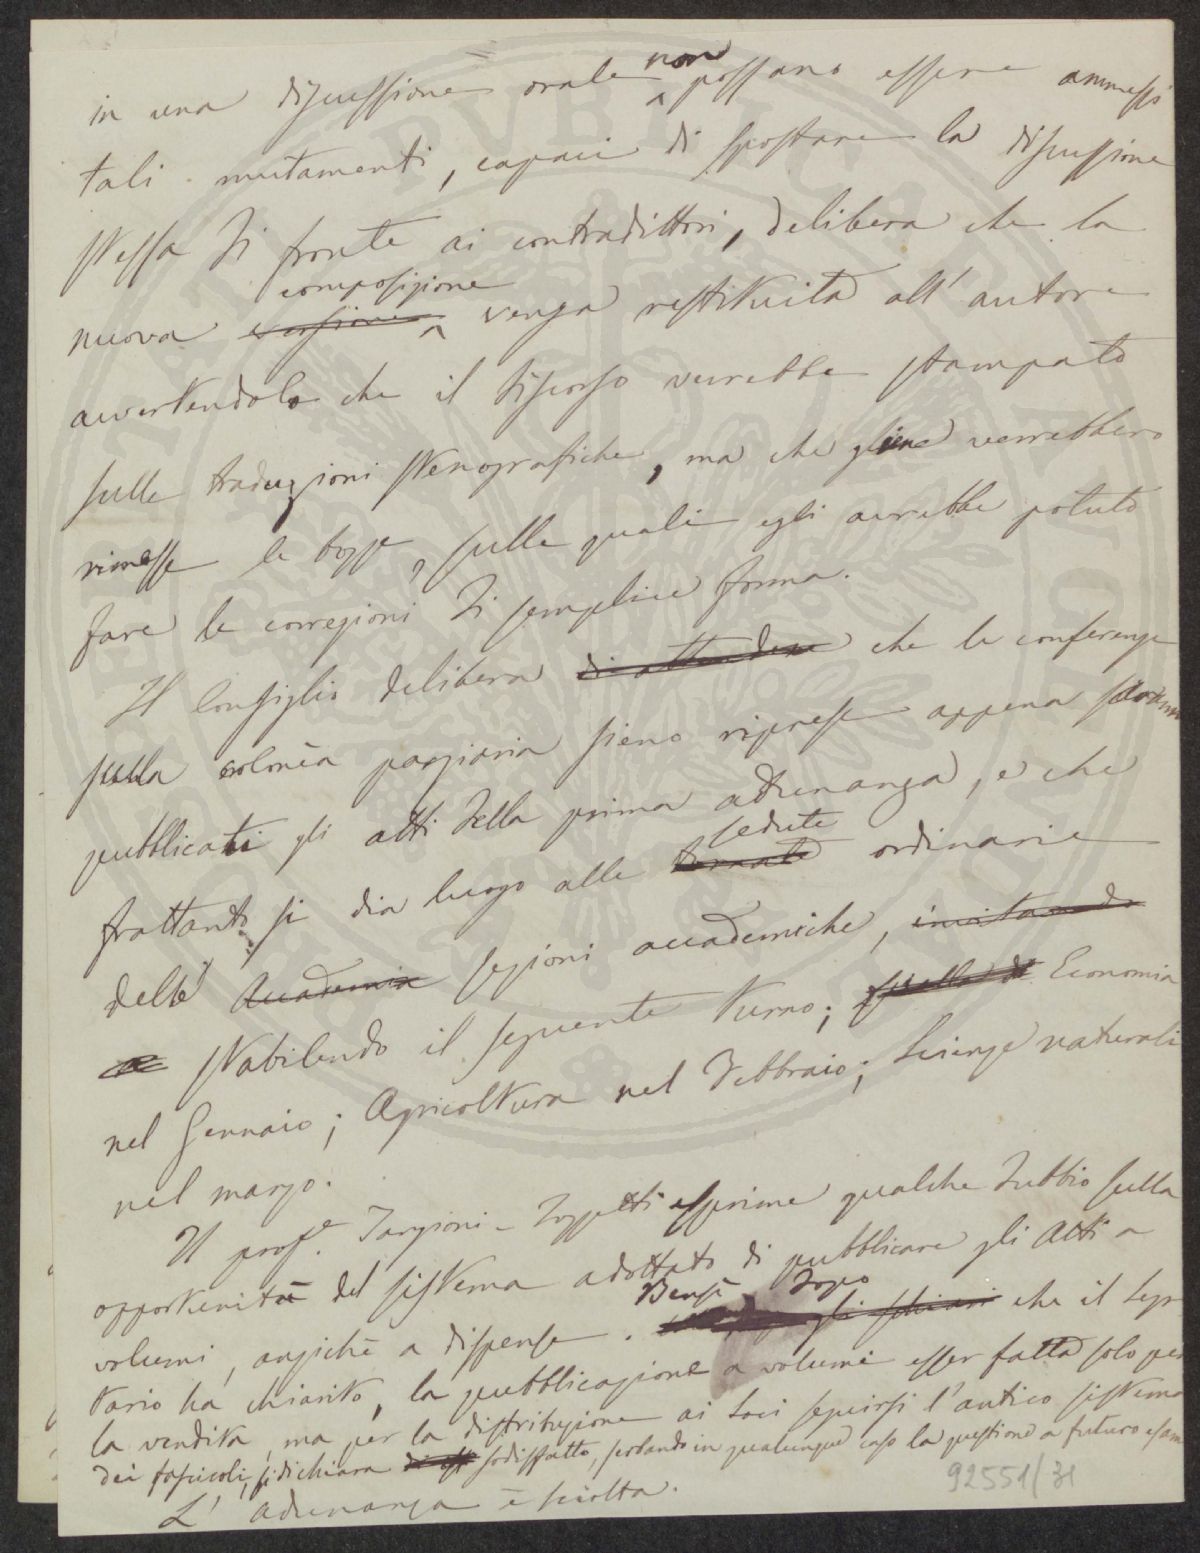 in una discussione orale non possano essere ammessi
tali mutamenti, capaci di spostare la discussione
stessa di fronte ai contradittori, delibera che la
nuova versione composizione venga restituita all'autore
avvertendolo che il discorso verrebbe stampato
sulle traduzioni stenografiche, ma che gliene verrebbero
rimesse le bozze, sulle quali egli avrebbe potuto
fare le correzioni di semplice forma.
Il Consiglio delibera di attendere che le conferenze
sulla colonìa parziaria sieno riprese appena saranno
pubblicati gli atti della prima adunanza, e che
frattanto si dia luogo alle tornate sedute ordinarie
delle Accademia sezioni accademiche, invitando
stabilendo il seguente turno; Economia
nel Gennaio; Agricoltura nel Febbraio; Scienze naturali
nel marzo.
Il prof.e Targioni-Tozzetti esprime qualche dubbio sulla
opportunità del sistema adottato di pubblicare gli Atti a
volumi, anzichè a dispense. Bensì dopo gli schiari che il Segre
tario ha chiarito, la pubblicazione a volumi esser fatta solo per
la vendita, ma per la distribuzione ai Soci seguirsi l'antico sistema
dei fascicoli, si dichiara sodisfatto, serbando in qualunque caso la questione a futuro esame
L'adunanza è sciolta.
92551/31